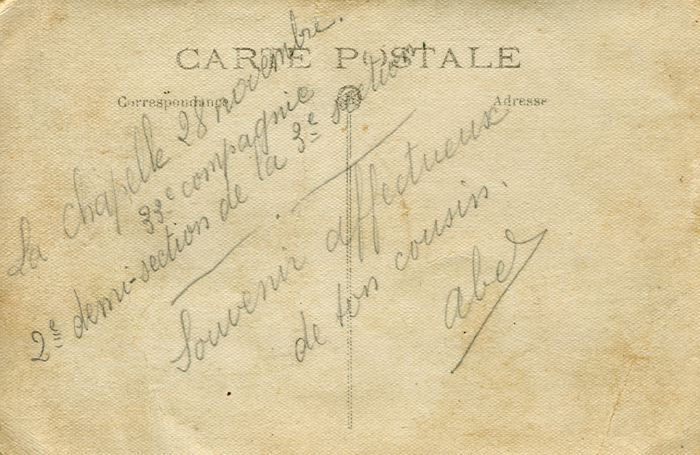 CARTE POSTALE
Correspondance
Adresse
La Chapelle 28 novembre.
33e compagnie
2e demi-section de la 3e section
Souvenir affectueux
de ton cousin.
Abel